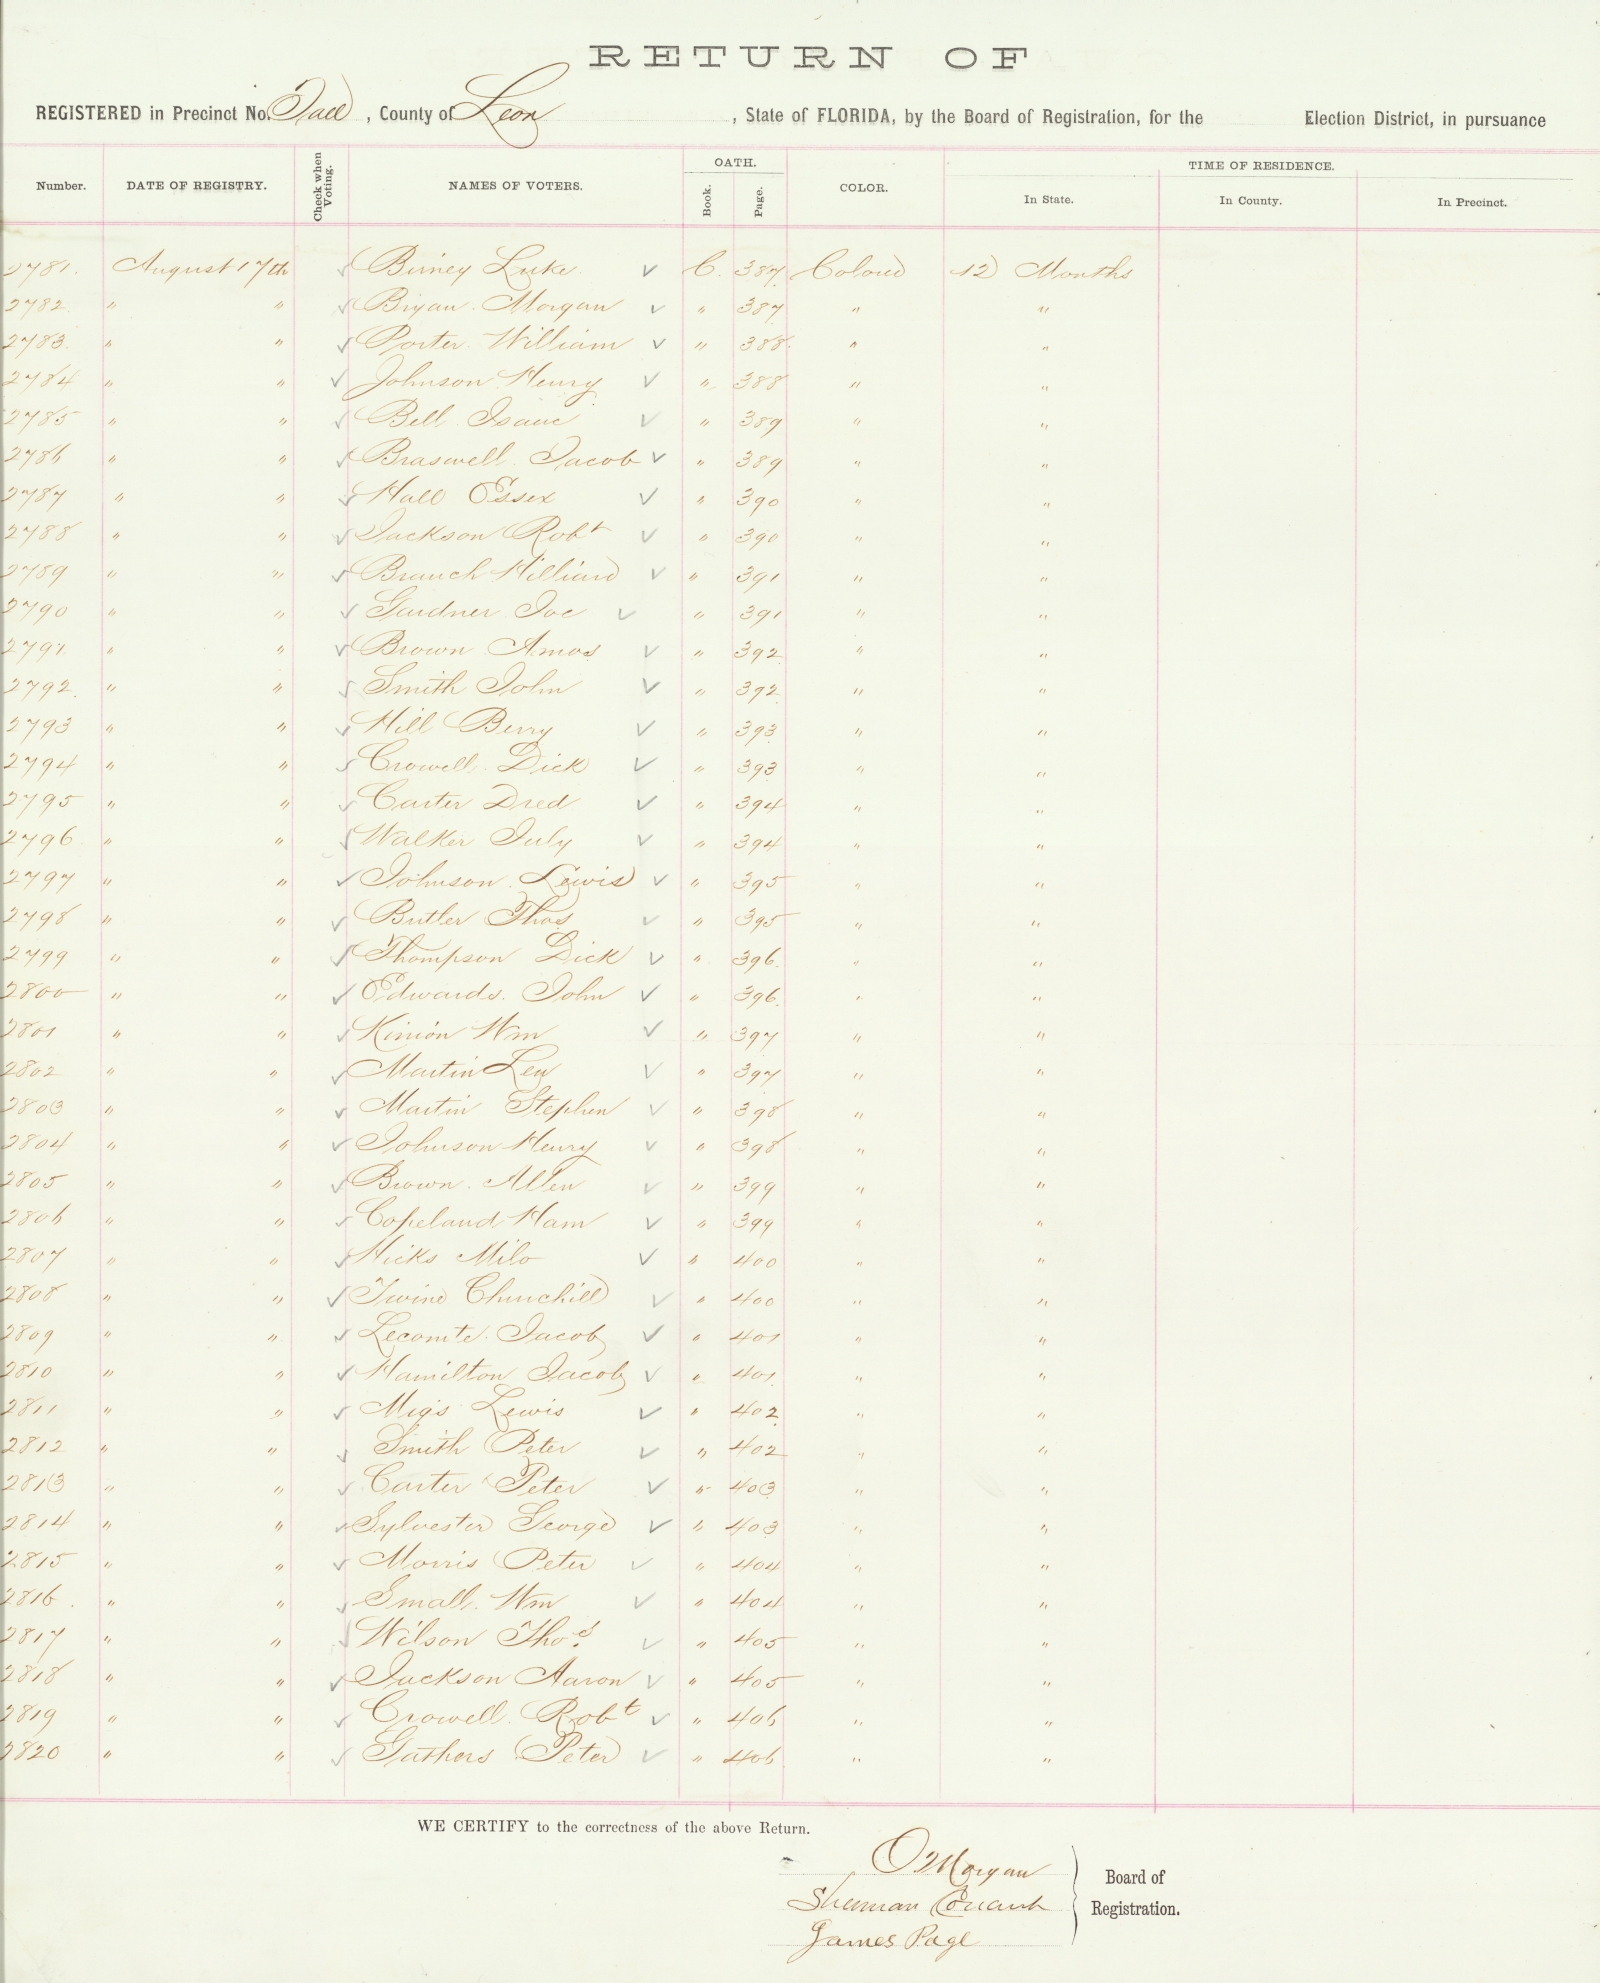 RETURN OF
REGISTERED in Precinct No. Tall , County of Leon , State of FLORIDA, by the Board of Registration, for the Election District, in pursuance
Number. DATE OF REGISTRY. Check when Voting. NAMES OF VOTERS. OATH. Book. Page. COLOR. TIME OF RESIDENCE. In State. In County. In Precinct.
2781. August 17th ✓ Birney Luke. ✓ C. 387. Colored 12 Months
2782 " " ✓ Bryan. Morgan ✓ " 387 " "
2783. " " ✓ Porter. William ✓ " 388. " "
2784 " " ✓ Johnson Henry ✓ " 388 " "
2785 " " ✓ Bell Isaac ✓ " 389 " "
2786 " " ✓ Braswell. Jacob ✓ " 389 " "
2787 " " ✓ Hall Essex ✓ " 390 " "
2788 " " ✓ Jackson Robt ✓ " 390 " "
2789 " " ✓ Branch Hilliard ✓ " 391 " "
2790 " " ✓ Gardner Joe ✓ " 391 " "
2791 " " ✓ Brown Amos ✓ " 392 " "
2792. " " ✓ Smith John ✓ " 392 " "
2793 " " ✓ Hill Berry ✓ " 393 " "
2794 " " ✓ Crowell. Dick ✓ " 393 " "
2795 " " ✓ Carter Dred ✓ " 394 " "
2796 " " ✓ Walker July ✓ " 394 " "
2797 " " ✓ Johnson. Lewis ✓ " 395 " "
2798 " " ✓ Butler Thos ✓ " 395 " "
2799 " " ✓ Thompson Dick ✓ " 396. " "
2800 " " ✓ Edwards. John ✓ " 396. " "
2801 " " ✓ Kinion Wm ✓ " 397 " "
2802 " " ✓ Martin Lew ✓ " 397 " "
2803 " " ✓ Martin Stephen ✓ " 398 " "
2804 " " ✓ Johnson Henry ✓ " 398 " "
2805 " " ✓ Brown. Allen ✓ " 399 " "
2806 " " ✓ Copeland Ham ✓ " 399 " "
2807 " " ✓ Hicks Milo ✓ " 400 " "
2808 " " ✓ Twine Churchill ✓ " 400 " "
2809 " " ✓ Lecomte. Jacob ✓ " 401 " "
2810 " " ✓ Hamilton Jacob ✓ " 401. " "
2811 " " ✓ Migs Lewis ✓ " 402 " "
2812 " " ✓ Smith Peter ✓ " 402 " "
2813 " " ✓ Carter Peter ✓ " 403 " "
2814 " " ✓ Sylvester George ✓ " 403 " "
2815 " " ✓ Morris Peter ✓ " 404 " "
2816. " " ✓ Small. Wm ✓ " 404 " "
2817 " " ✓ Wilson Thos. ✓ " 405 " "
2818 " " ✓ Jackson Aaron ✓ " 405 " "
2819 " " ✓ Crowell. Robt ✓ " 406 " "
2820 " " ✓ Gathers Peter ✓ " 406 " "
WE CERTIFY to the correctness of the above Return.
O Morgan
Sherman Conant
James Page
Board of
Registration.